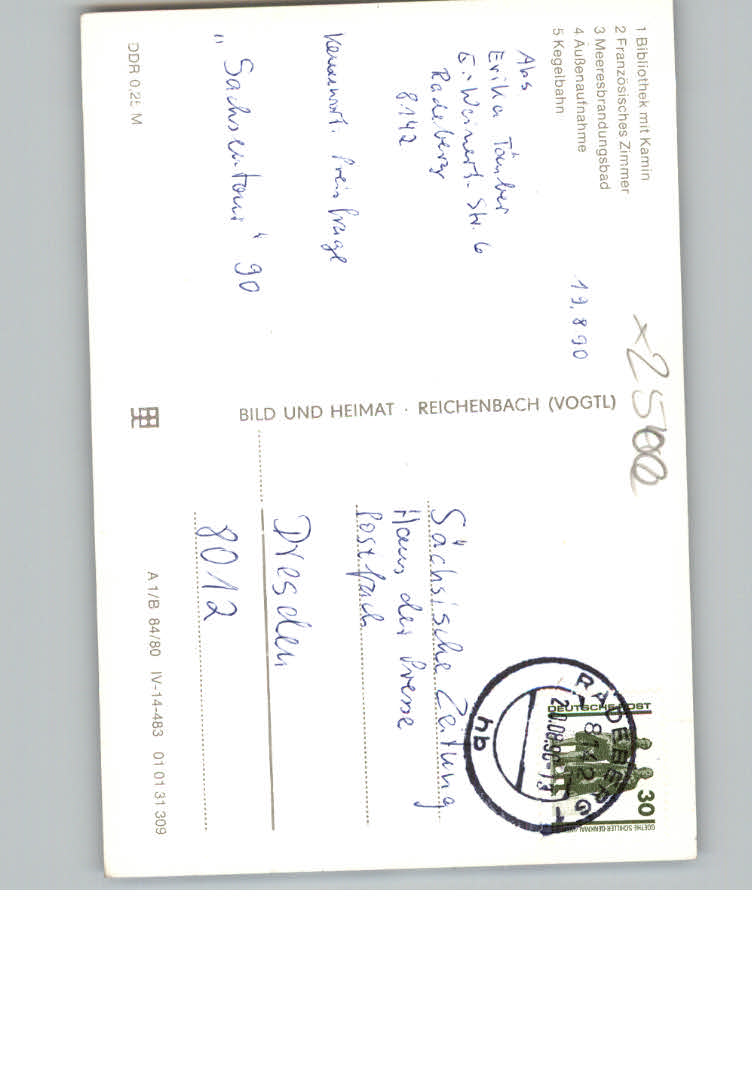 1 Bibliothek mit Kamin
2 Französisches Zimmer
3 Meeresbrandungsbad
4 Außenaufnahme
5 Kegelbahn
19.8 90
Abs
Erika Täuber
E.-Weinert-Str. 6
Radeberg
8142
Kennwort. Preisfrage
"Sachsentour" 90
DDR 0,25 M
x25
BILD UND HEIMAT · REICHENBACH (VOGTL)
DEUTSCHE POST
30
GOETHE-SCHILLER-DENKMAL
RADEBERG 1
8142
20.08.90
hb
Sächsische Zeitung
Haus der Presse
Postfach
Dresden
8012
A 1/B 84/80 IV-14-483 01 01 31 309